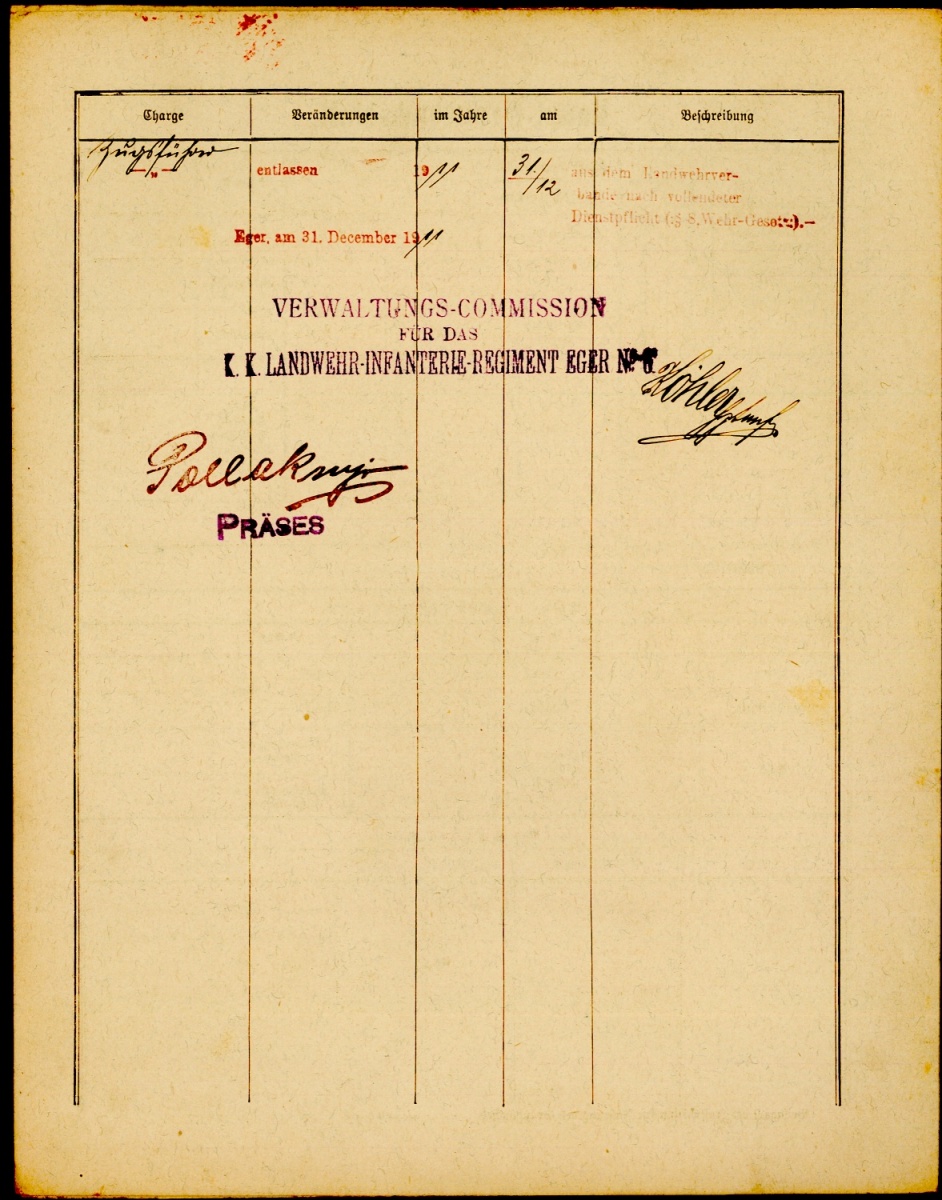 Charge Veränderungen im Jahre am Beschreibung
Zugsführer
" entlassen 1911 31./12 aus dem Landwehrver-
bande nach vollendeter
Dienstpflicht (:§ 8. Wehr-Gesetz:).-
Eger, am 31. December 1911
VERWALTUNGS-COMMISSION
FÜR DAS
K. K. LANDWEHR-INFANTERIE-REGIMENT EGER No. 6.
Köhler
Pollak mjr
PRÄSES